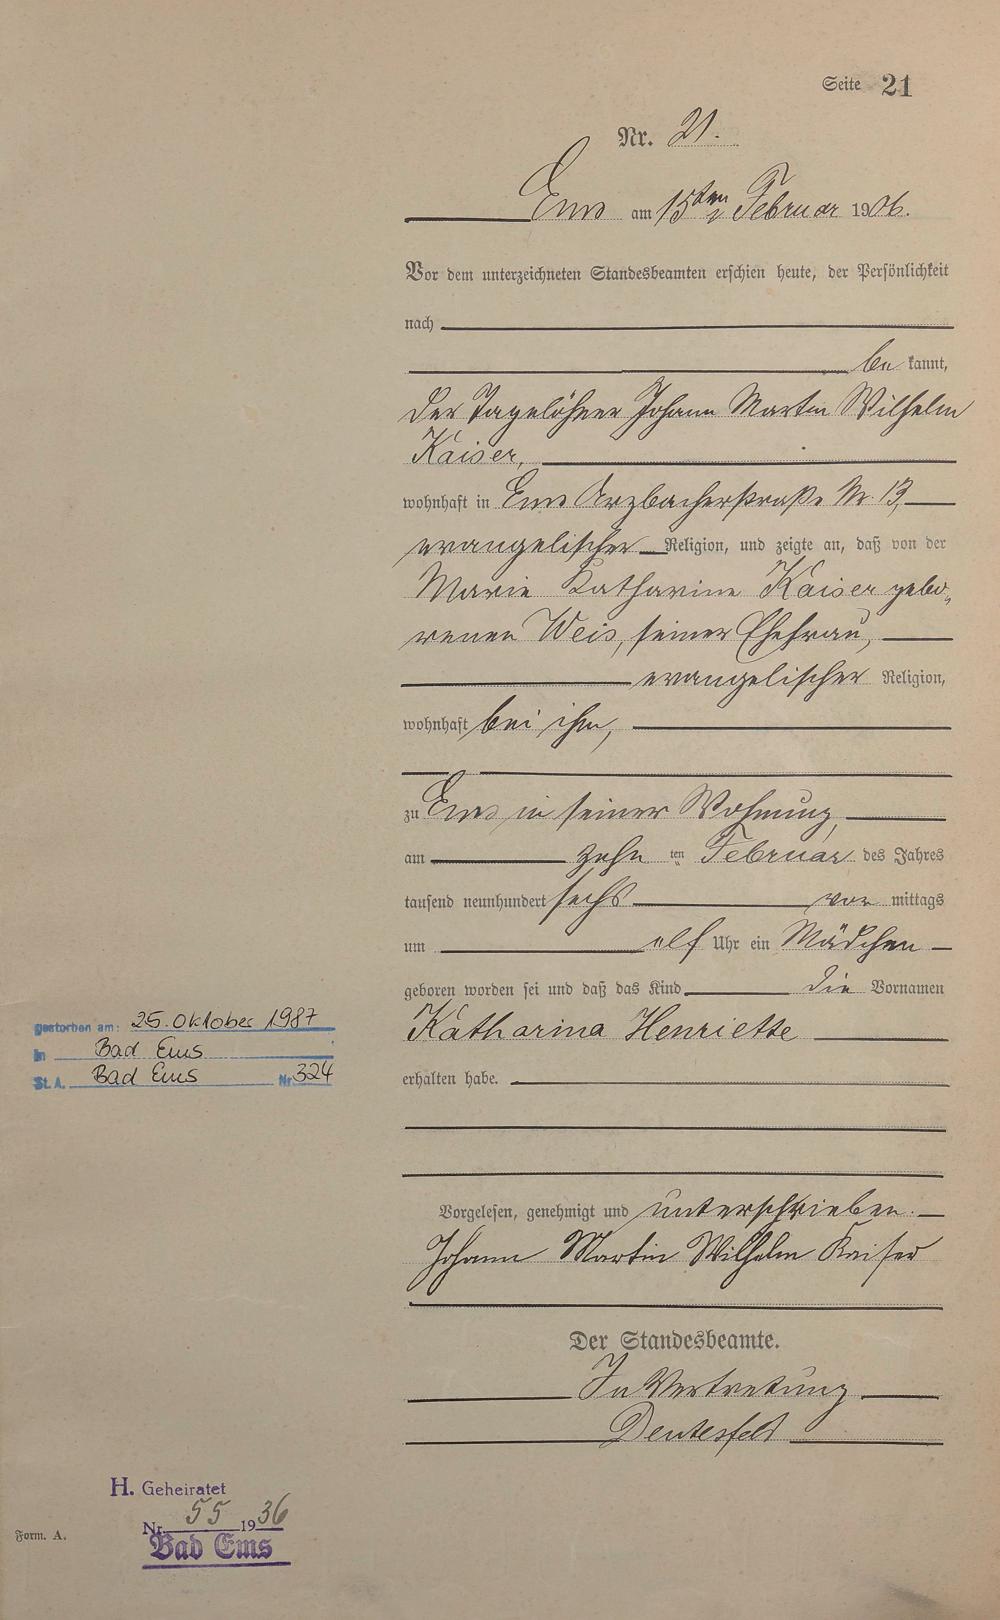 Seite 21
Nr. 21.
Ems am 15ten Februar 1906.
Vor dem unterzeichneten Standesbeamten erschien heute, der Persönlichkeit
nach
be kannt,
der Tagelöhner Johann Martin Wilhelm
Kaiser,
wohnhaft in Ems Arzbacherstraße Nr. 13,
evangelischer Religion, und zeigte an, daß von der
Marie Katharine Kaiser gebo-
renen Weis, seiner Ehefrau,
evangelischer Religion,
wohnhaft bei ihm,
zu Ems in seiner Wohnung,
am zehn ten Februar des Jahres
tausend neunhundert sechs vor mittags
um elf Uhr ein Mädchen
geboren worden sei und daß das Kind die Vornamen
Katharina Henriette
erhalten habe.
gestorben am: 25. Oktober 1987
in Bad Ems
St. A. Bad Ems Nr 324
Vorgelesen, genehmigt und unterschrieben.
Johann Martin Wilhelm Kaiser
Der Standesbeamte.
In Vertretung
H. Geheiratet
Nr. 55 1936
Bad Ems
Form. A.